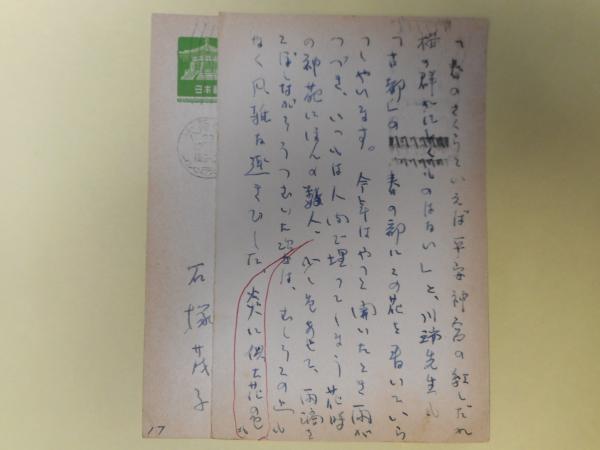 「春のさくらといえば平安神宮の紅しだれ
桜の群がにしくものはない」と、川端先生も
「古都」の春の部にこの花を書いていら
っしやいます。今年はやつと開いたとき雨が
つづき、いつもは人間で埋ってしまう花時
の神苑にほんの数人、少し色あせて、雨滴を
こぼしながらうつむいた姿は、むしろこの上も
なく風雅な趣きでした。炎に倶む花の色
石塚茂子
17
日本郵